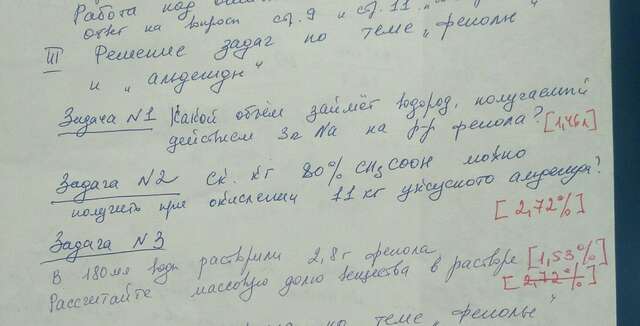 Работа над
ответ на вопрос стр. 9 и стр. 11 „фенолы"
III Решение задач по теме „фенолы"
и „альдегиды"
Задача №1 Какой объём займёт водород, получаемый
действием 3г Na на р-р фенола? [1,46л]
Задача №2 Ск. кг 80% CH3COOH можно
получить при окислении 11 кг уксусного альдегида?
[2,72%]
Задача №3
В 180 мл воды растворили 2,8 г фенола
Рассчитайте массовую долю вещества в растворе [1,53%]
[2,72%]
по теме „фенолы"